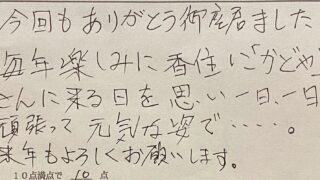 今回もありがとう御座居ました
毎年楽しみに香住い「かどや」
さんに来る日を思い一日、一日
頑張って元気な姿で・・・・・。
来年もよろしくお願いします。
10点満点で 10 点